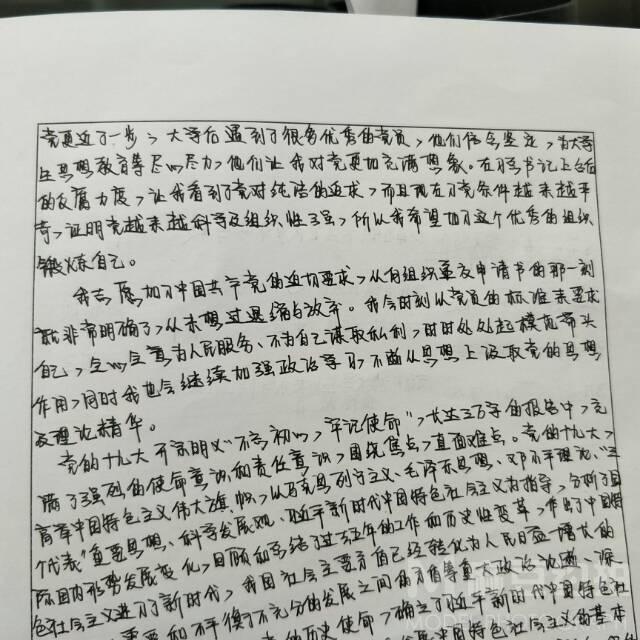 党更近了一步，大学后遇到了很多优秀的党员，他们信念坚定，为大学
生思想教育等尽心尽力，他们让我对党更加充满想象。在习书记上台后
的反腐力度，让我看到了党对纯洁的追求，而且现在入党条件越来越平
奇，证明党越来越科学及组织性强，所以我希望加入这个优秀的组织
锻炼自己。
我志愿加入中国共产党的迫切要求，从向组织递交申请书的那一刻
就非常明确了，从未想过退缩与放弃。我会时刻以党员的标准来要求
自己，全心全意为人民服务、不为自己谋取私利，时时处处起模范带头
作用，同时我也会继续加强政治学习，不断从思想上汲取党的思想
及理论精华。
党的十九大开宗明义“不忘初心，牢记使命”，长达三万字的报告中，充
满了强烈的使命意识和责任意识，围绕焦点，直面难点。党的十九大，
高举中国特色社会主义伟大旗帜，以马克思列宁主义、毛泽东思想、邓小平理论、“三
个代表”重要思想、科学发展观、习近平新时代中国特色社会主义为指导，分析了国
际国内形势发展变化，回顾和总结了过去五年的工作和历史性变革，作出了中国特
色社会主义进入了新时代，我国社会主要矛盾已经转化为人民日益增长的
要和不平衡不充分的发展之间的矛盾等重大政治论断，深
的历史使命，确立了习近平新时代中国特色社
中国特色社会主义的基本